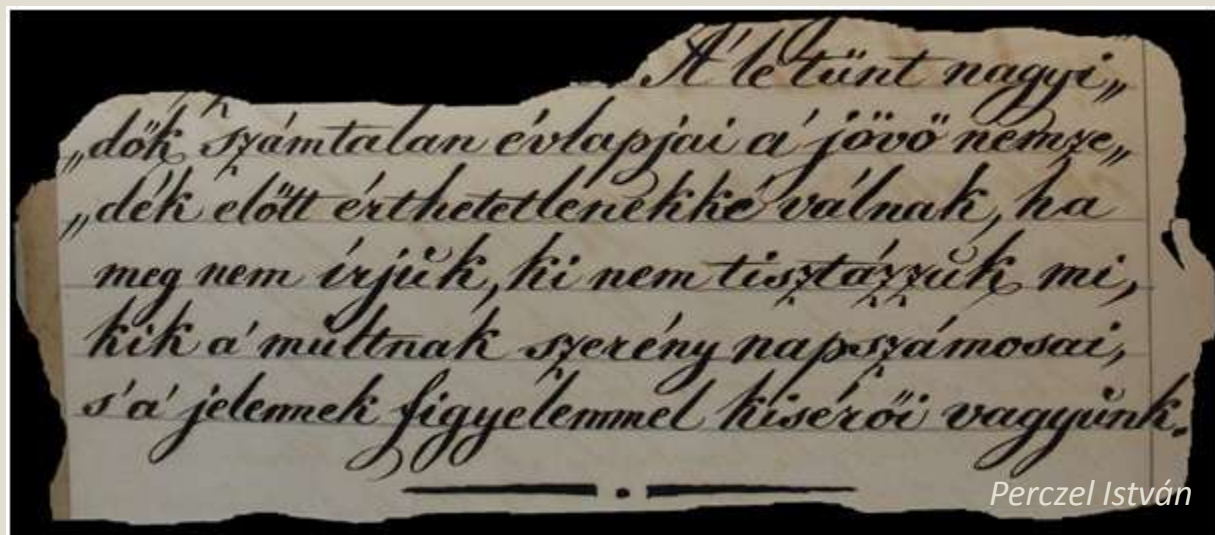 A' le tűnt nagyi„
„dők számtalan évlapjai a' jövő nemze„
„dék előtt érthetetlenekké válnak, ha
meg nem írjuk, ki nem tisztázzuk mi,
kik a' múltnak szerény napszámosai,
s'a' jelennek figyelemmel kisérői vagyunk.
Perczel István